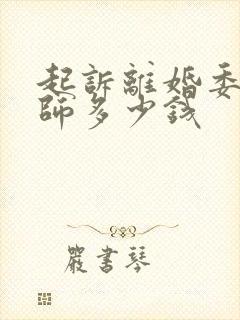 起訴離婚委
師多少錢
嚴書琴